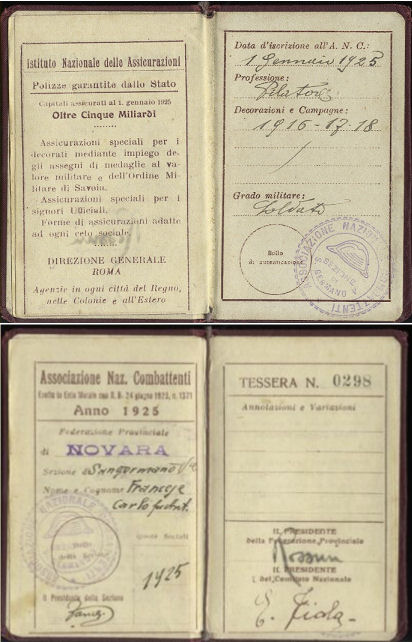 Istituto Nazionale delle Assicurazioni
Polizze garantite dallo Stato
Capitali assicurati al 1. gennaio 1925
Oltre Cinque Miliardi
Assicurazioni speciali per i
decorati mediante impiego de-
gli assegni di medaglie al va-
lore militare e dell'Ordine Mi-
litare di Savoia.
Assicurazioni speciali per i
signori Ufficiali.
Forme di assicurazioni adatte
ad ogni ceto sociale.
DIREZIONE GENERALE
ROMA
Agenzie in ogni città del Regno,
nelle Colonie e all'Estero
Data d'iscrizione all'A. N. C.:
1 Gennaio 1925
Professione:
Decorazioni e Campagne:
1916-17-18
Grado militare:
Soldato
Bollo
di autenticazione
ASSOCIAZIONE NAZION
Associazione Naz. Combattenti
Eretta in Ente Morale con R. D. 24 giugno 1923, n. 1371
Anno 1925
Federazione Provinciale
di NOVARA
Sezione di Sangermano
Nome e Cognome Francese
Carlo
Quote Sociali
1925
Il Presidente della Sezione
TESSERA N. 0298
Annotazioni e Variazioni
IL PRESIDENTE
della Federazione Provinciale
IL PRESIDENTE
del Comitato Nazionale